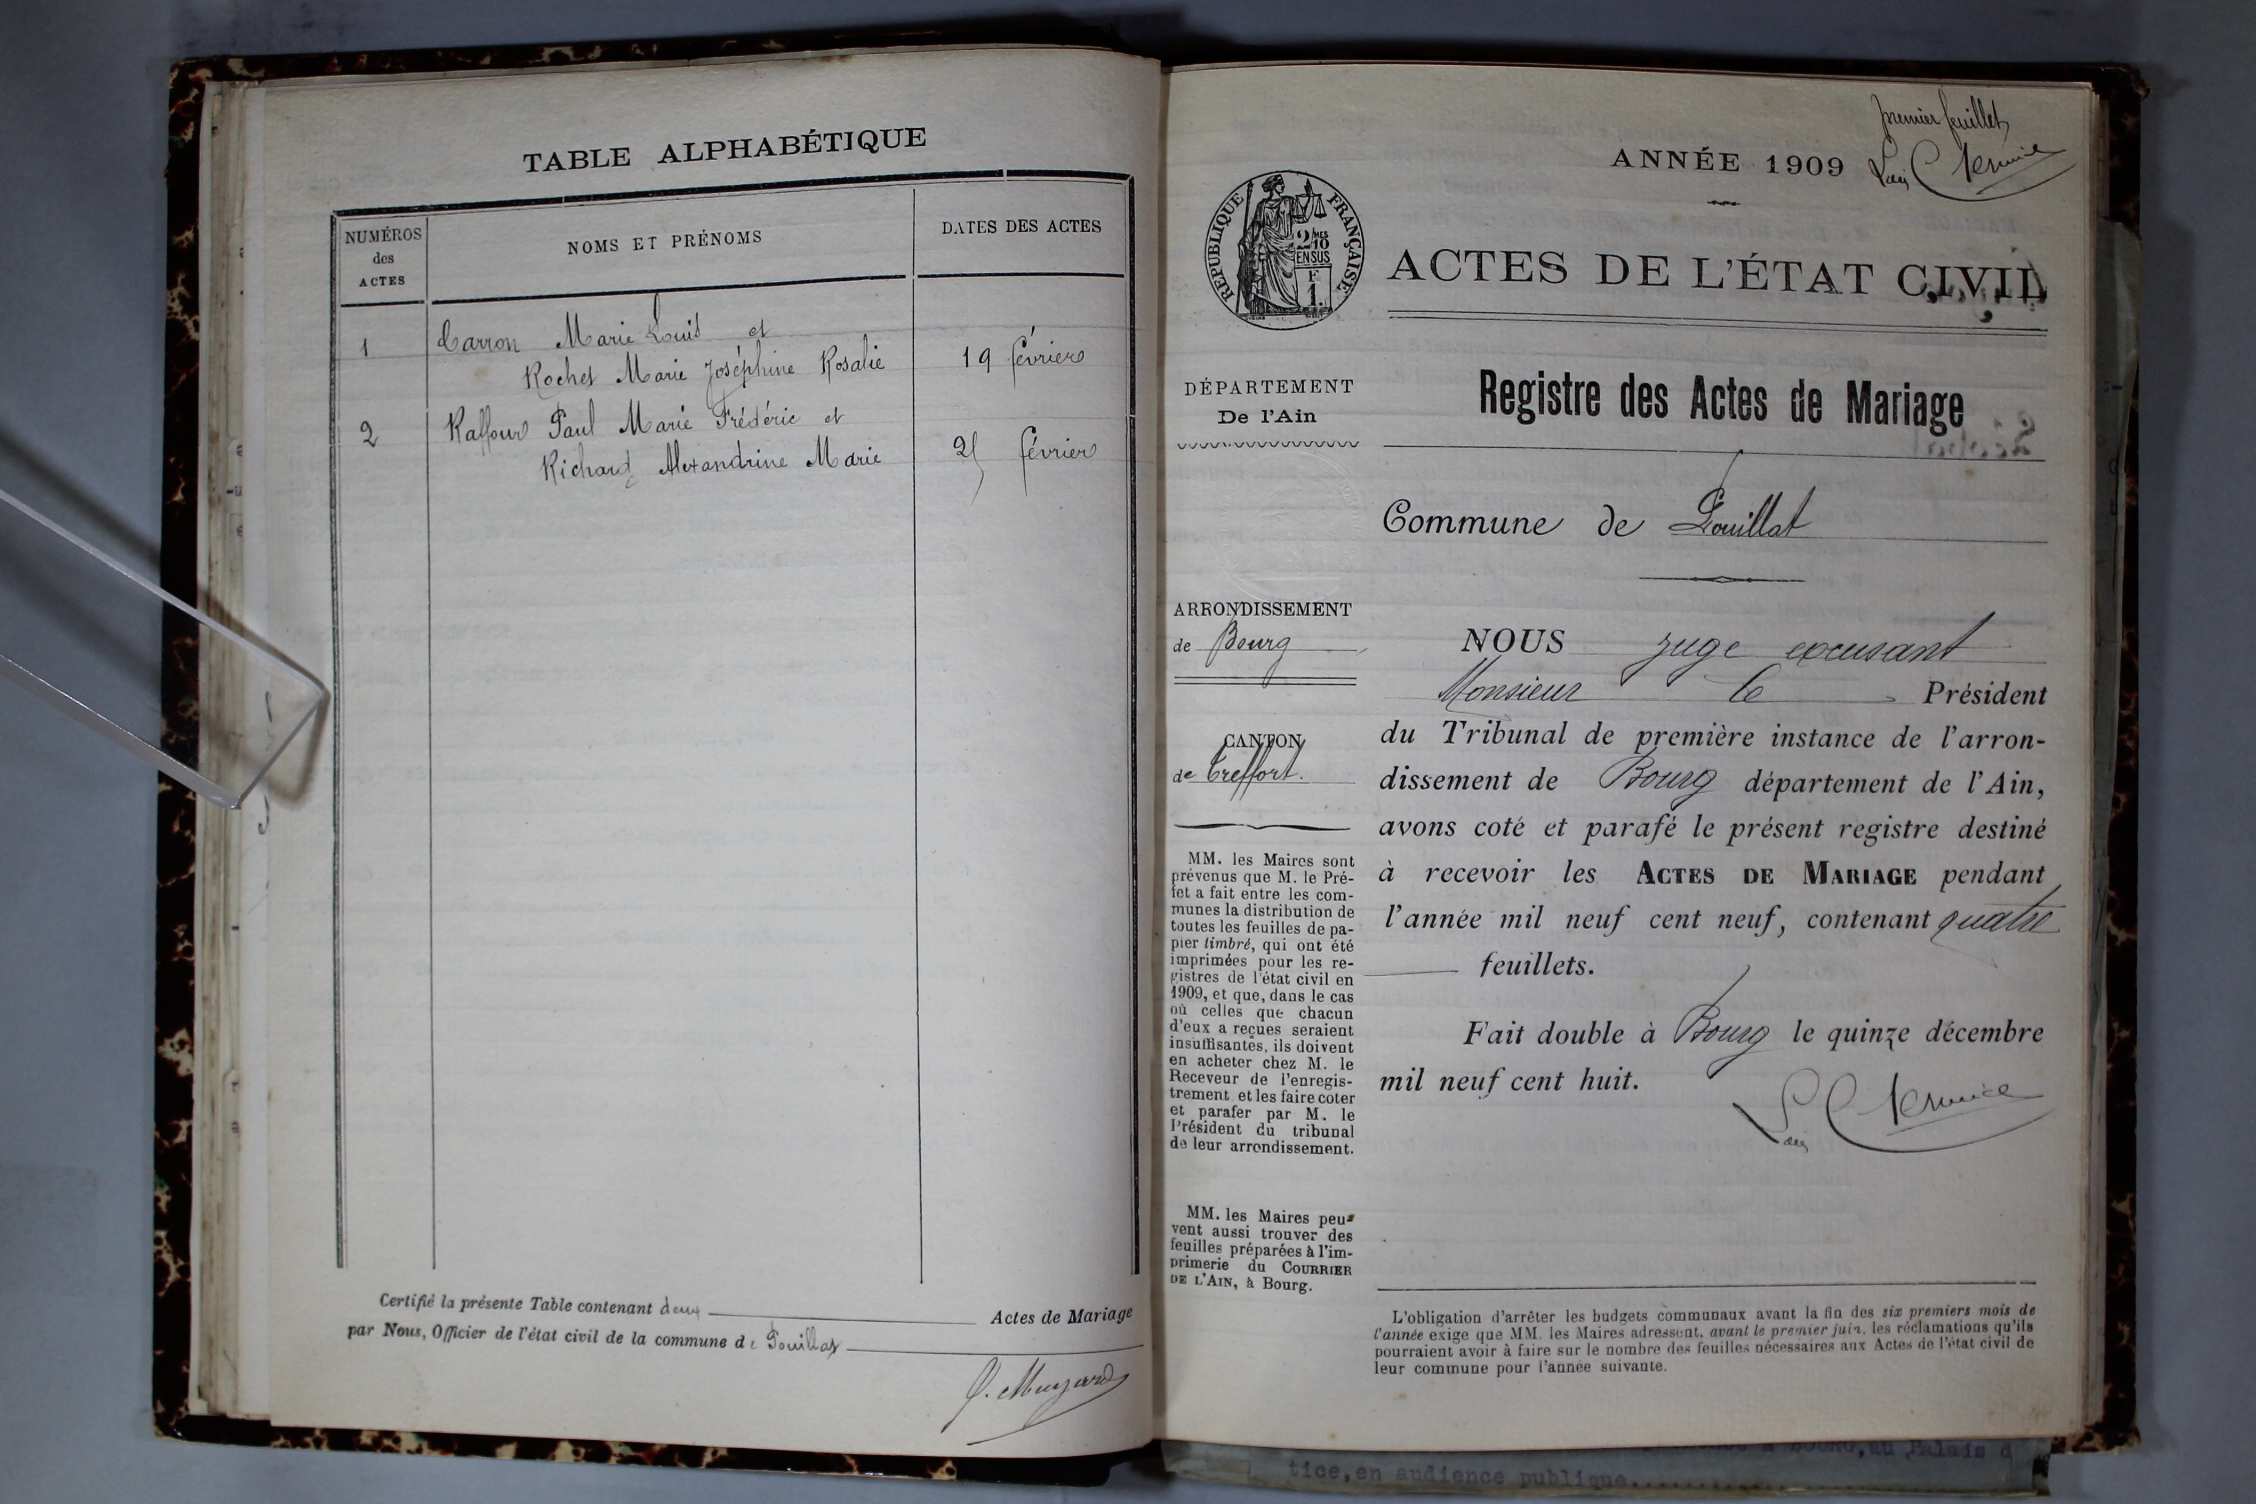 TABLE ALPHABÉTIQUE
NUMÉROS
des
ACTES
NOMS ET PRÉNOMS
DATES DES ACTES
1
Carron Marie Louis et
Rochet Marie Joséphine Rosalie
19 février
2
Raffour Paul Marie Frédéric et
Richard Alexandrine Marie
25 février
Certifié la présente Table contenant deux Actes de Mariage
par Nous, Officier de l'état civil de la commune de Pouillat
premier feuillet
ANNÉE 1909
RÉPUBLIQUE FRANÇAISE
2/10 MES
EN SUS
F
1.
ACTES DE L'ÉTAT CIVIL
DÉPARTEMENT
De l'Ain
Registre des Actes de Mariage
Commune de Pouillat
ARRONDISSEMENT
de Bourg
CANTON
de Treffort.
MM. les Maires sont
prévenus que M. le Pré-
fet a fait entre les com-
munes la distribution de
toutes les feuilles de pa-
pier timbré, qui ont été
imprimées pour les re-
gistres de l'état civil en
1909, et que, dans le cas
où celles que chacun
d'eux a reçues seraient
insuffisantes, ils doivent
en acheter chez M. le
Receveur de l'enregis-
trement et les faire coter
et parafer par M. le
Président du tribunal
de leur arrondissement.
MM. les Maires peu-
vent aussi trouver des
feuilles préparées à l'im-
primerie du COURRIER
DE L'AIN, à Bourg.
NOUS juge excusant
Monsieur le Président
du Tribunal de première instance de l'arron-
dissement de Bourg département de l'Ain,
avons coté et parafé le présent registre destiné
à recevoir les ACTES DE MARIAGE pendant
l'année mil neuf cent neuf, contenant quatre
feuillets.
Fait double à Bourg le quinze décembre
mil neuf cent huit.
L'obligation d'arrêter les budgets communaux avant la fin des six premiers mois de
l'année exige que MM. les Maires adressent, avant le premier juin, les réclamations qu'ils
pourraient avoir à faire sur le nombre des feuilles nécessaires aux Actes de l'état civil de
leur commune pour l'année suivante.
BOURG, au Palais d
tice, en audience publique